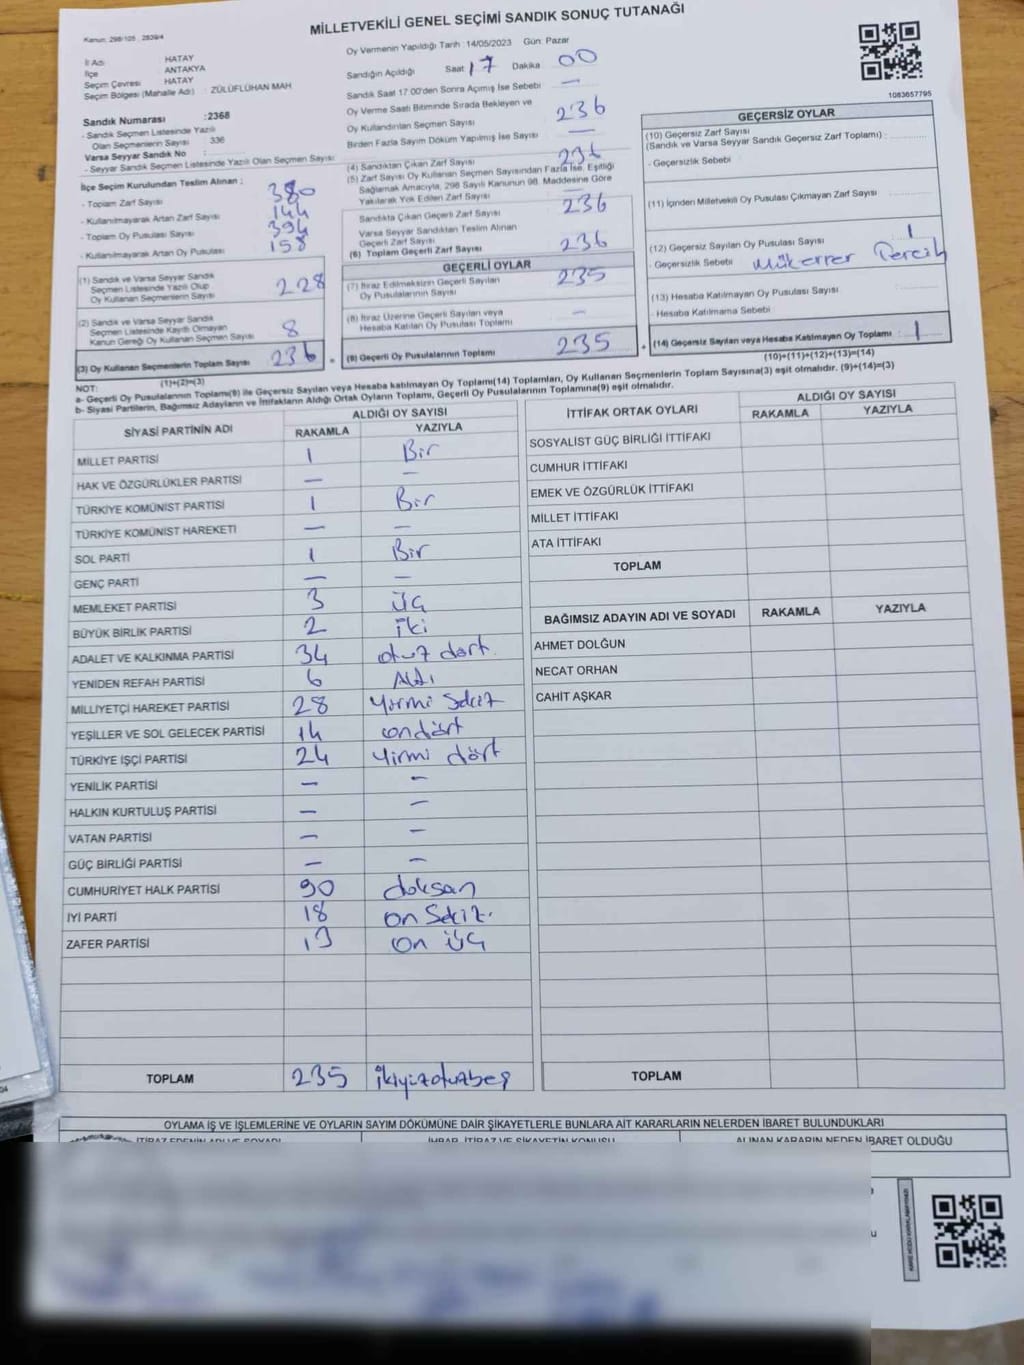 MİLLETVEKİLİ GENEL SEÇİMİ SANDIK SONUÇ TUTANAĞI
Kanun: 298/105 , 2839/4
İl Adı HATAY
İlçe ANTAKYA
Seçim Çevresi HATAY
Seçim Bölgesi (Mahalle Adı) : ZÜLÜFLÜHAN MAH
Sandık Numarası :2368
- Sandık Seçmen Listesinde Yazılı
Olan Seçmenlerin Sayısı : 336
Varsa Seyyar Sandık No :
- Seyyar Sandık Seçmen Listesinde Yazılı Olan Seçmen Sayısı:
İlçe Seçim Kurulundan Teslim Alınan :
- Toplam Zarf Sayısı 380
- Kullanılmayarak Artan Zarf Sayısı 144
- Toplam Oy Pusulası Sayısı 394
- Kullanılmayarak Artan Oy Pusulası 158
(1) Sandık ve Varsa Seyyar Sandık
Seçmen Listesinde Yazılı Olup
Oy Kullanan Seçmenlerin Sayısı 228
(2) Sandık ve Varsa Seyyar Sandık
Seçmen Listesinde Kayıtlı Olmayan
Kanun Gereği Oy Kullanan Seçmen Sayısı 8
(3) Oy Kullanan Seçmenlerin Toplam Sayısı 236
(1)+(2)=(3)
Oy Vermenin Yapıldığı Tarih : 14/05/2023 Gün: Pazar
Sandığın Açıldığı Saat 17 Dakika 00
Sandık Saat 17:00'den Sonra Açımış İse Sebebi —
Oy Verme Saati Bitiminde Sırada Bekleyen ve
Oy Kullandırılan Seçmen Sayısı 236
Birden Fazla Sayım Döküm Yapılmış İse Sayısı —
(4) Sandıktan Çıkan Zarf Sayısı 236
(5) Zarf Sayısı Oy Kullanan Seçmen Sayısından Fazla İse, Eşitliği
Sağlamak Amacıyla, 298 Sayılı Kanunun 98. Maddesine Göre
Yakılarak Yok Edilen Zarf Sayısı —
Sandıkta Çıkan Geçerli Zarf Sayısı 236
Varsa Seyyar Sandıktan Teslim Alınan
Geçerli Zarf Sayısı
(6) Toplam Geçerli Zarf Sayısı 236
GEÇERLİ OYLAR
(7) İtiraz Edilmeksizin Geçerli Sayılan
Oy Pusulalarının Sayısı 235
(8) İtiraz Üzerine Geçerli Sayılan veya
Hesaba Katılan Oy Pusulası Toplamı —
(9) Geçerli Oy Pusulalarının Toplamı 235
1083657795
GEÇERSİZ OYLAR
(10) Geçersiz Zarf Sayısı
(Sandık ve Varsa Seyyar Sandık Geçersiz Zarf Toplamı) :
- Geçersizlik Sebebi
(11) İçinden Milletvekili Oy Pusulası Çıkmayan Zarf Sayısı
(12) Geçersiz Sayılan Oy Pusulası Sayısı 1
- Geçersizlik Sebebi Mükerrer Tercih
(13) Hesaba Katılmayan Oy Pusulası Sayısı
- Hesaba Katılmama Sebebi
(14) Geçersiz Sayılan veya Hesaba Katılmayan Oy Toplamı : 1
(10)+(11)+(12)+(13)=(14)
NOT:
a- Geçerli Oy Pusulalarının Toplamı(9) ile Geçersiz Sayılan veya Hesaba katılmayan Oy Toplamı(14) Toplamları, Oy Kullanan Seçmenlerin Toplam Sayısına(3) eşit olmalıdır. (9)+(14)=(3)
b- Siyasi Partilerin, Bağımsız Adayların ve İttifakların Aldığı Ortak Oyların Toplamı, Geçerli Oy Pusulalarının Toplamına(9) eşit olmalıdır.
SİYASİ PARTİNİN ADI ALDIĞI OY SAYISI
RAKAMLA YAZIYLA
MİLLET PARTİSİ 1 Bir
HAK VE ÖZGÜRLÜKLER PARTİSİ — —
TÜRKİYE KOMÜNİST PARTİSİ 1 Bir
TÜRKİYE KOMÜNİST HAREKETİ — —
SOL PARTİ 1 Bir
GENÇ PARTİ — —
MEMLEKET PARTİSİ 3 üç
BÜYÜK BİRLİK PARTİSİ 2 iki
ADALET VE KALKINMA PARTİSİ 34 otuz dört
YENİDEN REFAH PARTİSİ 6 Altı
MİLLİYETÇİ HAREKET PARTİSİ 28 yirmi sekiz
YEŞİLLER VE SOL GELECEK PARTİSİ 14 ondört
TÜRKİYE İŞÇİ PARTİSİ 24 yirmi dört
YENİLİK PARTİSİ — —
HALKIN KURTULUŞ PARTİSİ — —
VATAN PARTİSİ — —
GÜÇ BİRLİĞİ PARTİSİ — —
CUMHURİYET HALK PARTİSİ 90 doksan
İYİ PARTİ 18 on sekiz.
ZAFER PARTİSİ 13 on üç
TOPLAM 235 ikiyüzotuzbeş
İTTİFAK ORTAK OYLARI ALDIĞI OY SAYISI
RAKAMLA YAZIYLA
SOSYALİST GÜÇ BİRLİĞİ İTTİFAKI
CUMHUR İTTİFAKI
EMEK VE ÖZGÜRLÜK İTTİFAKI
MİLLET İTTİFAKI
ATA İTTİFAKI
TOPLAM
BAĞIMSIZ ADAYIN ADI VE SOYADI RAKAMLA YAZIYLA
AHMET DOLĞUN
NECAT ORHAN
CAHİT AŞKAR
TOPLAM
OYLAMA İŞ VE İŞLEMLERİNE VE OYLARIN SAYIM DÖKÜMÜNE DAİR ŞİKAYETLERLE BUNLARA AİT KARARLARIN NELERDEN İBARET BULUNDUKLARI
İTİRAZ EDENİN ADI VE SOYADI İHBAR, İTİRAZ VE ŞİKAYETİN KONUSU ALINAN KARARIN NEDEN İBARET OLDUĞU